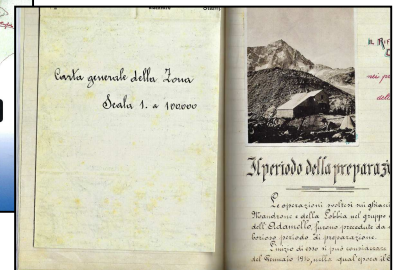 Carta generale della Zona
Scala 1. a 100000
IL RIF
nei pr
dell
Il periodo della preparazi
Le operazioni svoltesi sui ghiacci
Mandrone e della Lobbia nel gruppo
dell'Adamello, furono precedute da
borioso periodo di preparazione.
L'inizio di esso si può considerare
del Gennaio 1916, nella qual epoca il